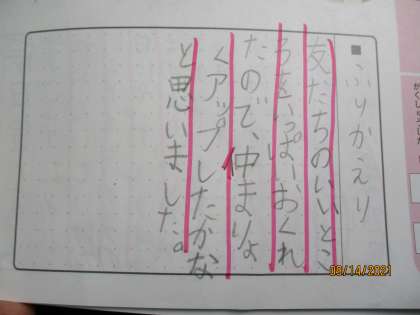 ■ふりかえり
友だちのいいとこ
ろをいっぱいおくれ
たので、仲まりょ
くアップしたかな
と思いました。
09/14/2021